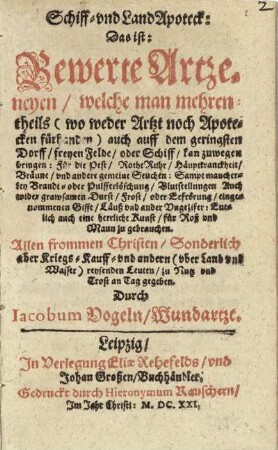 2
Schiff-vnd Land Apoteck:
Das ist:
Bewerte Artze-
neyen / welche man mehren-
theils (wo weder Artzt noch Apote-
cken fürhanden) auch auff dem geringsten
Dorff / freyen Felde / oder Schiff / kan zuwegen
bringen: Für die Pest / Rothe Ruhr / Häuptkranckheit /
Bräune / vnd andere gemeine Seuchen: Sampt mancher-
ley Brandt- oder Pulfferlöschung / Blutstellungen Auch
wider grawsamen Durst / Frost / oder Erfrörung / einge-
nommenen Gifft / Läuß vnd ander Vngeziefer: Ent-
lich auch eine herrliche Kunst / für Roß vnd
Mann zu gebrauchen.
Allen frommen Christen / Sonderlich
aber Kriegs-Kauff-vnd andern (vber Land vnd
Wasser) reysenden Leuten / zu Nutz vnd
Trost an Tag gegeben.
Durch
Iacobum Vogeln / Wundartzt.
Leipzig /
In Verlegung Eliæ Rehefelds / vnd
Johan Großen / Buchhändler,
Gedruckt durch Hieronymum Rauschern /
Im Jahr Christi: M. DC. XXI.